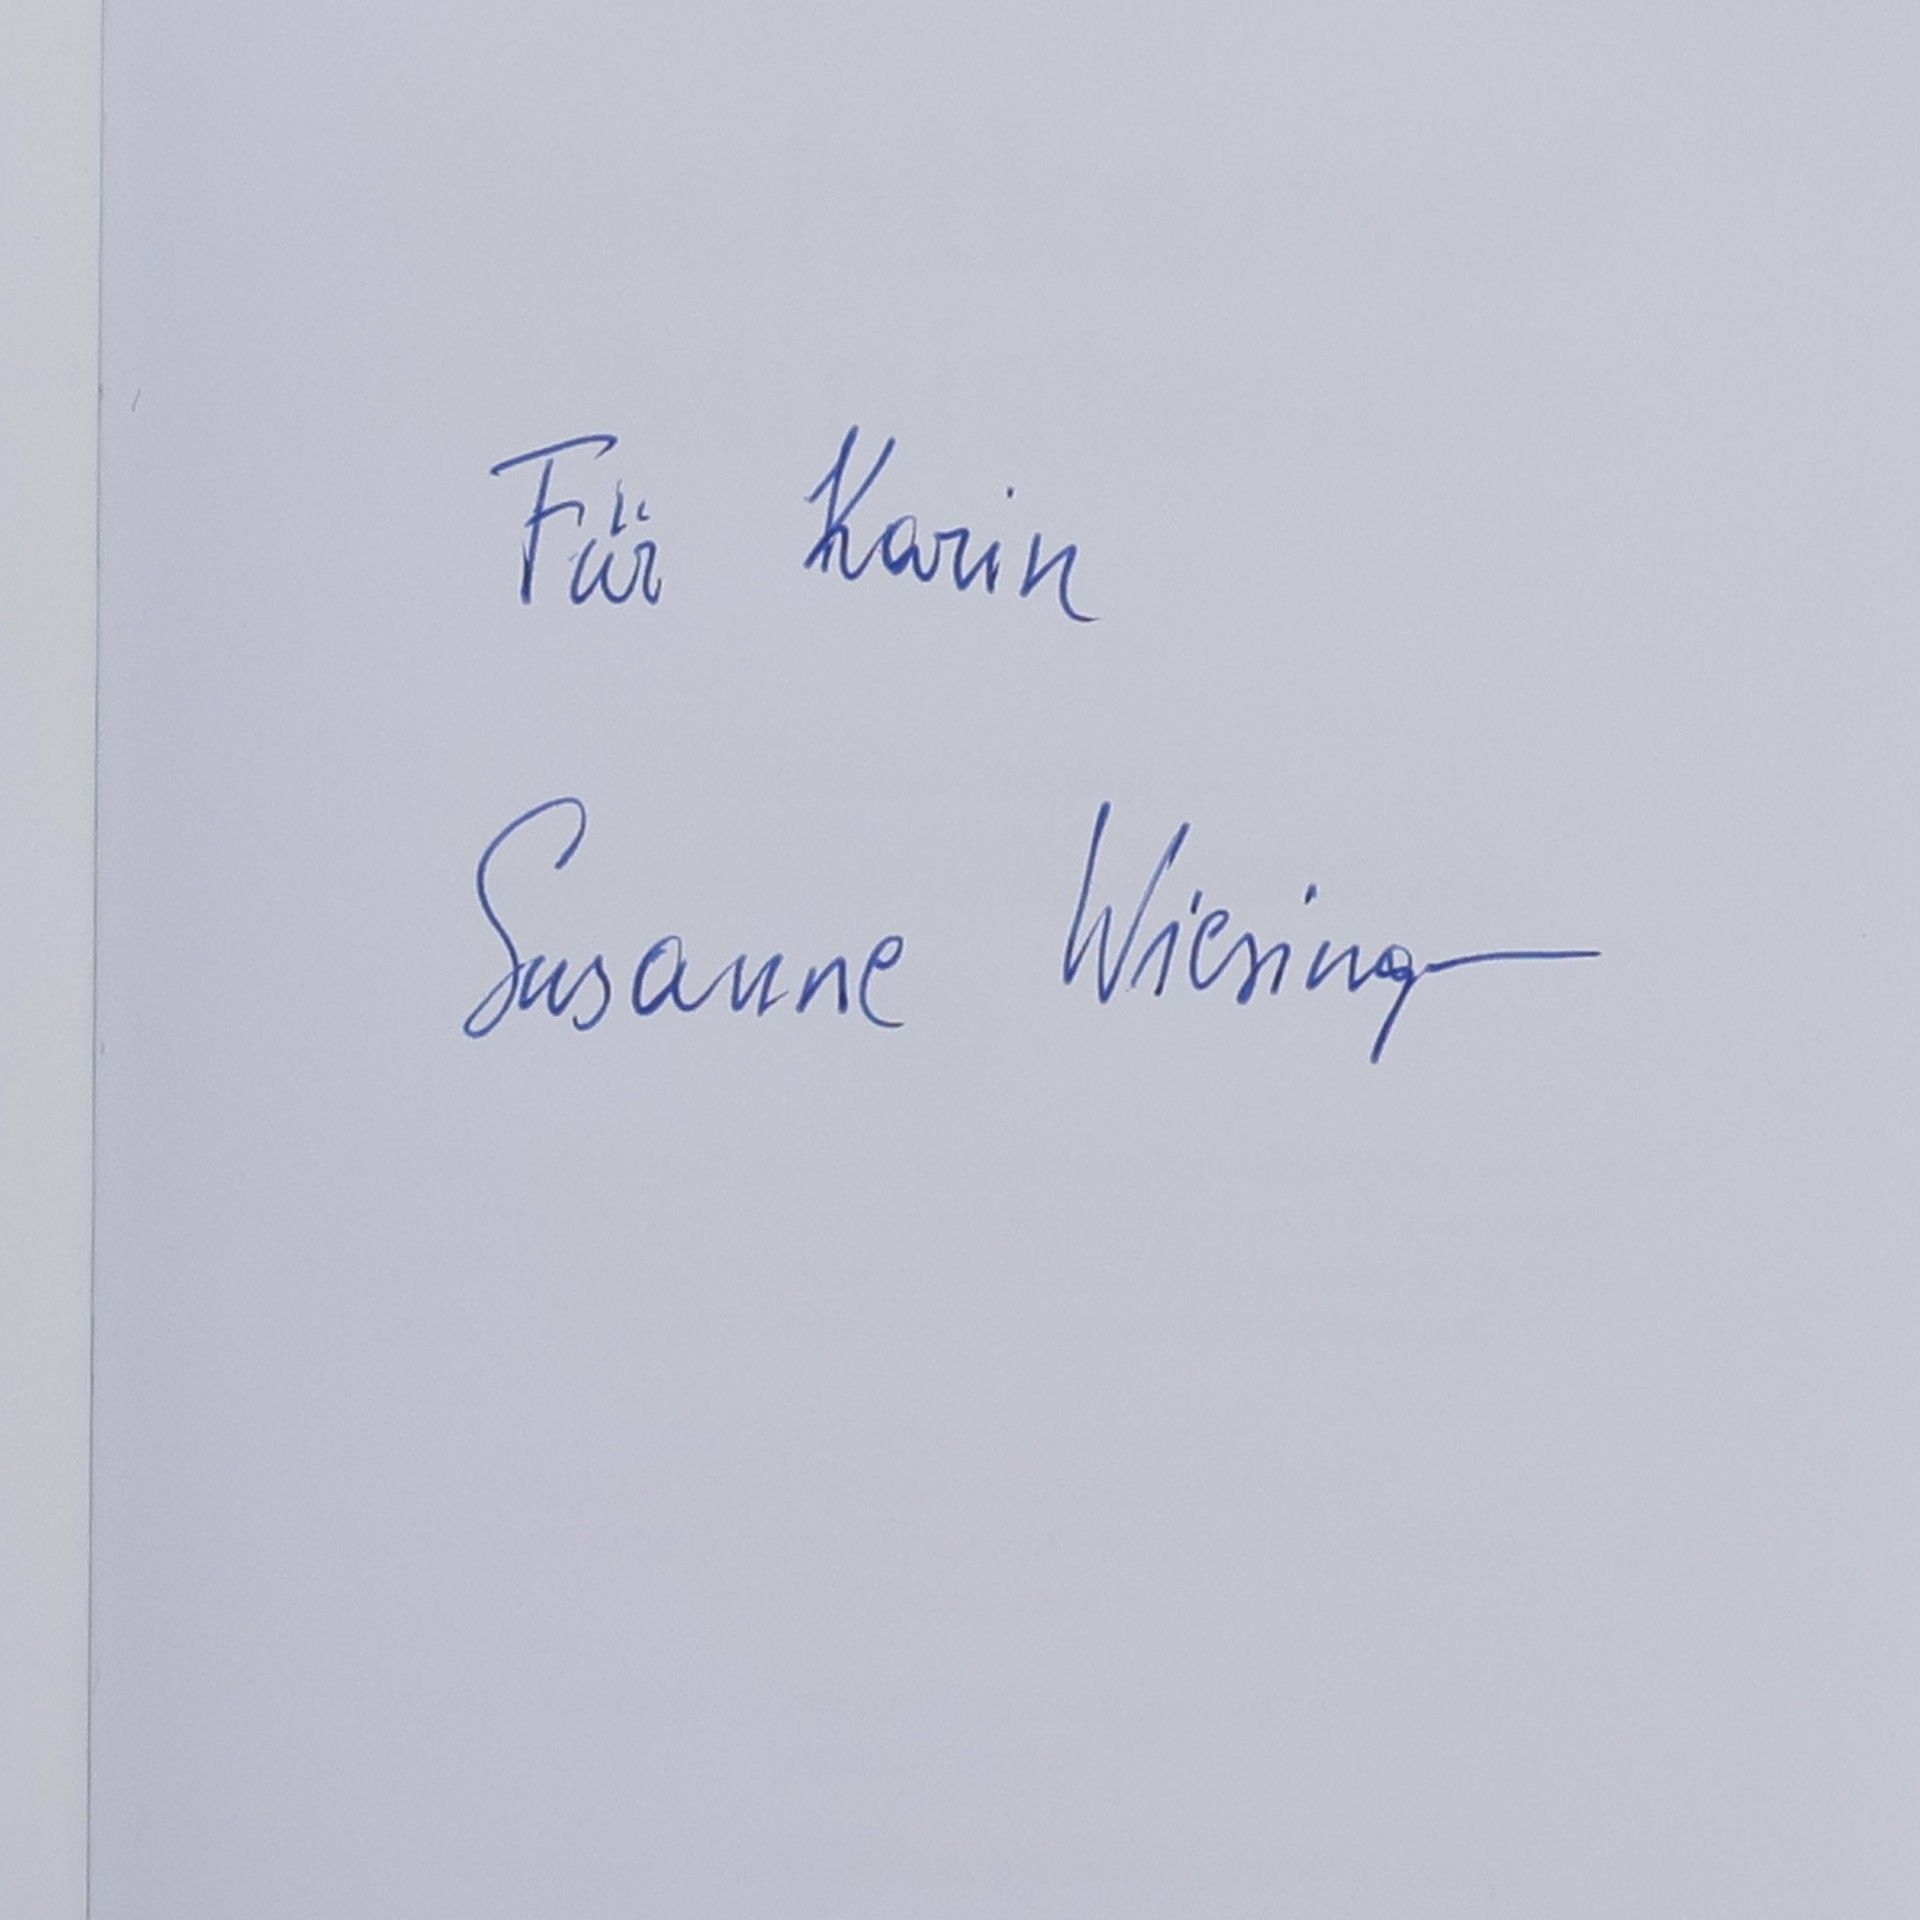 Für Karin
Susanne Wiesing